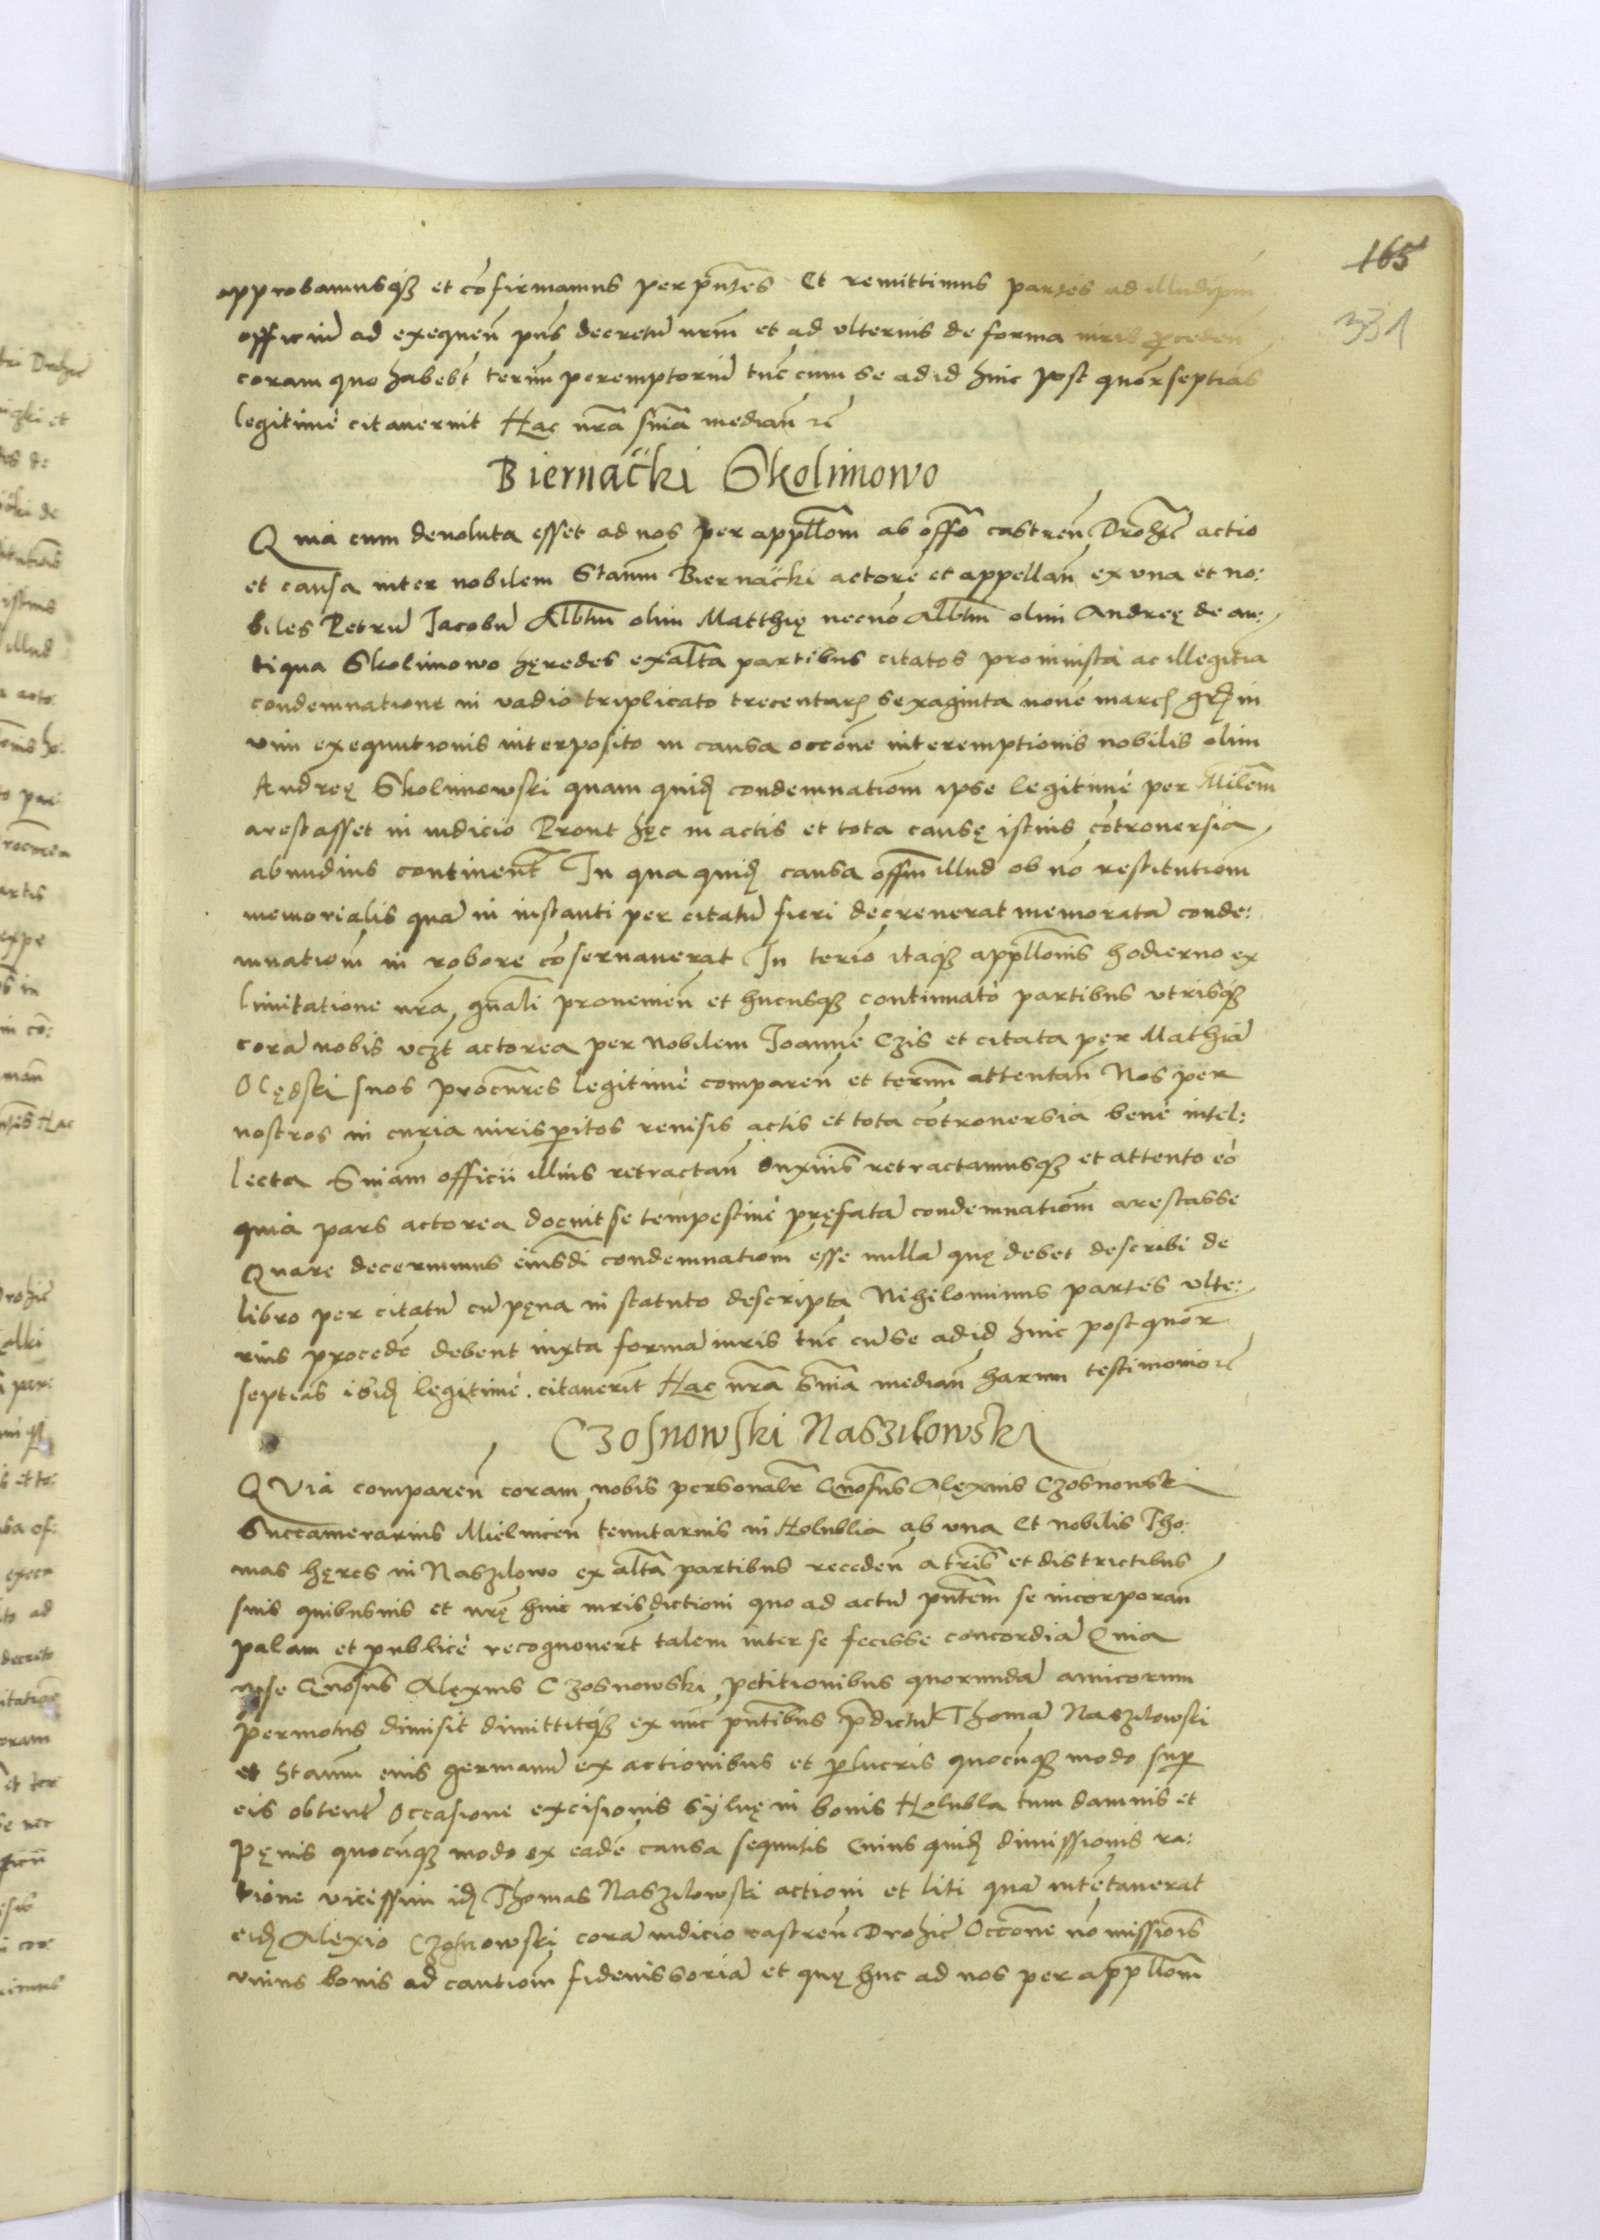 165
331
approbamusq3 et cōfirmamus per pn̄tes Et remittimus partes ad illud ipm
officiū ad exequen̄ pn̄s decretū nrm̄ et ad vlterius de forma iuris proceden̄
coram quo habebt̄ termn̄ peremptoriū tūc cum se ad id hinc post quōr septias
legitime citauerint Hac nrā sn̄ia median̄ rē
Biernacki Skolimowo
Quia cum deuoluta esset ad nos per appllōm ab offō castren̄ Drohic̄ actio
et causa inter nobilem Stanm̄ Biernacki actorē et appellan̄ ex vna et no:
biles Petrū Jacobū Albtm̄ olim Matthię necnō Albtm̄ olim Andreę de an:
tiqua Skolimowo hęredes ex altā partibus citatos pro iniusta ac illegitīa
condemnatione in vadio triplicato trecentarȝ sexaginta nouē marcȝ grȝ in
vim exequutionis interposito in causa occōne interemptionis nobilis olim
Andreę Skolimowski quam quidȝ condemnatiōm ipse legitime per Milēm
arestasset in iudicio Prout hęc in actis et tota causę istius cōtrouersia
abundius continent̄ In qua quidȝ causa offm̄ illud ob nō restitutiōm
memorialis quā in instanti per citatū fieri decreuerat memoratā conde:
mnatiōm in robore cōseruauerat In teriō itaq3 appllōnis hodierno ex
limitatione nrā gn̄ali prouenien̄ et hucusq3 continuato partibus vtrisq3
corā nobis vczt actorea per Nobilem Joannē Czis et citata per Mathiā
Olędski suos procurēs legitime comparen̄ et termn̄ attentan̄ Nos per
nostros in curia iurisperitos reuisis actis et tota cōtrouersia bene intel:
lecta Sniam officii illius retractan̄ duximus retractamusq3 et attento eo
quia pars actorea docuit se tempestiue pręfatā condemnatiōm arestasse
Quare decernimus eiusdī condemnatiōm esse nullā quę debet describi de
libro per citatū cū pęna in statuto descripta Nihilominus partes vlte:
rius procedē debent iuxta formā iuris tūc cū se ad id hinc post quōr
septias ibidȝ legitime citauerīt Hac nrā Sn̄ia median̄ harum testimonio rē
Czosnowski Naszilowski
QVia comparen̄ coram nobis personalr̄ Gn̄osus Alexius Czosnowski
Succamerarius Mielnicen̄ tenutarius in Holublia ab vna Et nobilis Tho:
mas hęres in Naszilowo ex altā partibus receden̄ a tr̄ris et districtibus
suis quibusuis et nrę huic iurisdictioni quo ad actū pn̄tem se incorporan̄
palam et publice recognouert̄ talem inter se fecisse concordiā Quia
ipse Gn̄osus Alexius Czosnowski petitionibus quorundā amicorum
permotus dimisit dimittitq3 ex nūc pn̄tibus p̄dictū Thomā Naszilowski
et Stanm̄ eius germanū ex actionibus et perlucris quocūq3 modo super
eis obtent̄ Occasione excisionis syluę in bonis Holubla tum damnis et
pęnis quocūq3 modo ex eadē causa sequutis Cuius quidȝ dimissionis ra:
tione vicissim idȝ Thomas Naszilowski actioni et liti quā intētauerat
eidȝ Alexio Czosnowski corā iudicio castren̄ Drohic̄ Occōne nō missiōis
vnius bouis ad cautiōm fideiussoriā et quę huc ad nos per appllōm